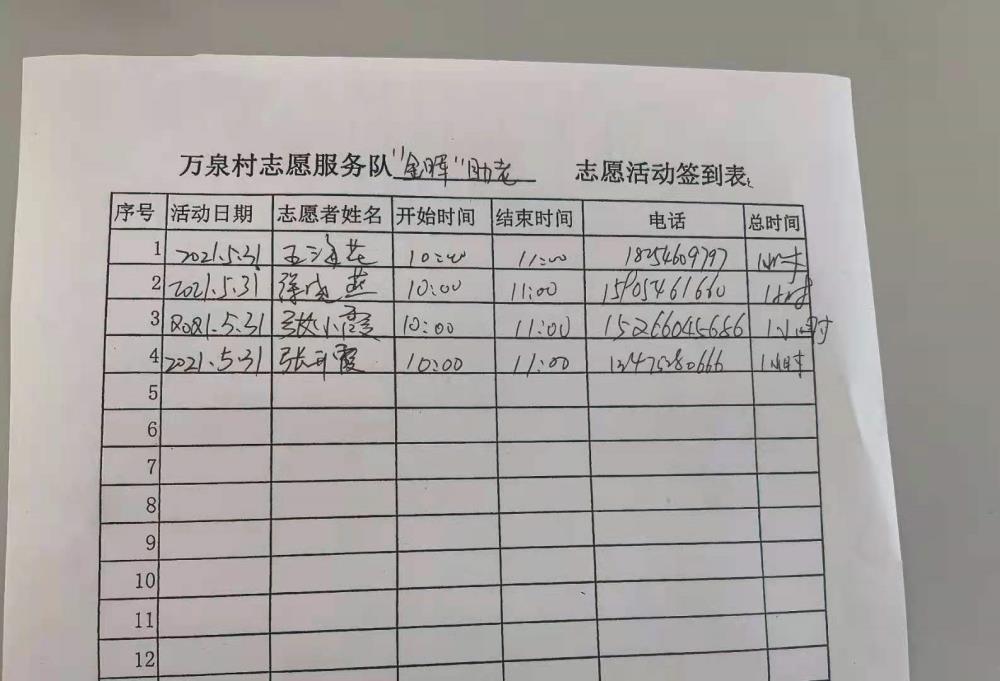 万泉村志愿服务队“金晖”助老 志愿活动签到表
序号 活动日期 志愿者姓名 开始时间 结束时间 电话 总时间
1 2021.5.31 王海花 10:00 11:00 18254609797 1小时
2 2021.5.31 徐晓燕 10:00 11:00 15905461660 1小时
3 2021.5.31 张小霞 10:00 11:00 15266045686 1小时
4 2021.5.31 张 霞 10:00 11:00 1小时
5
6
7
8
9
10
11
12